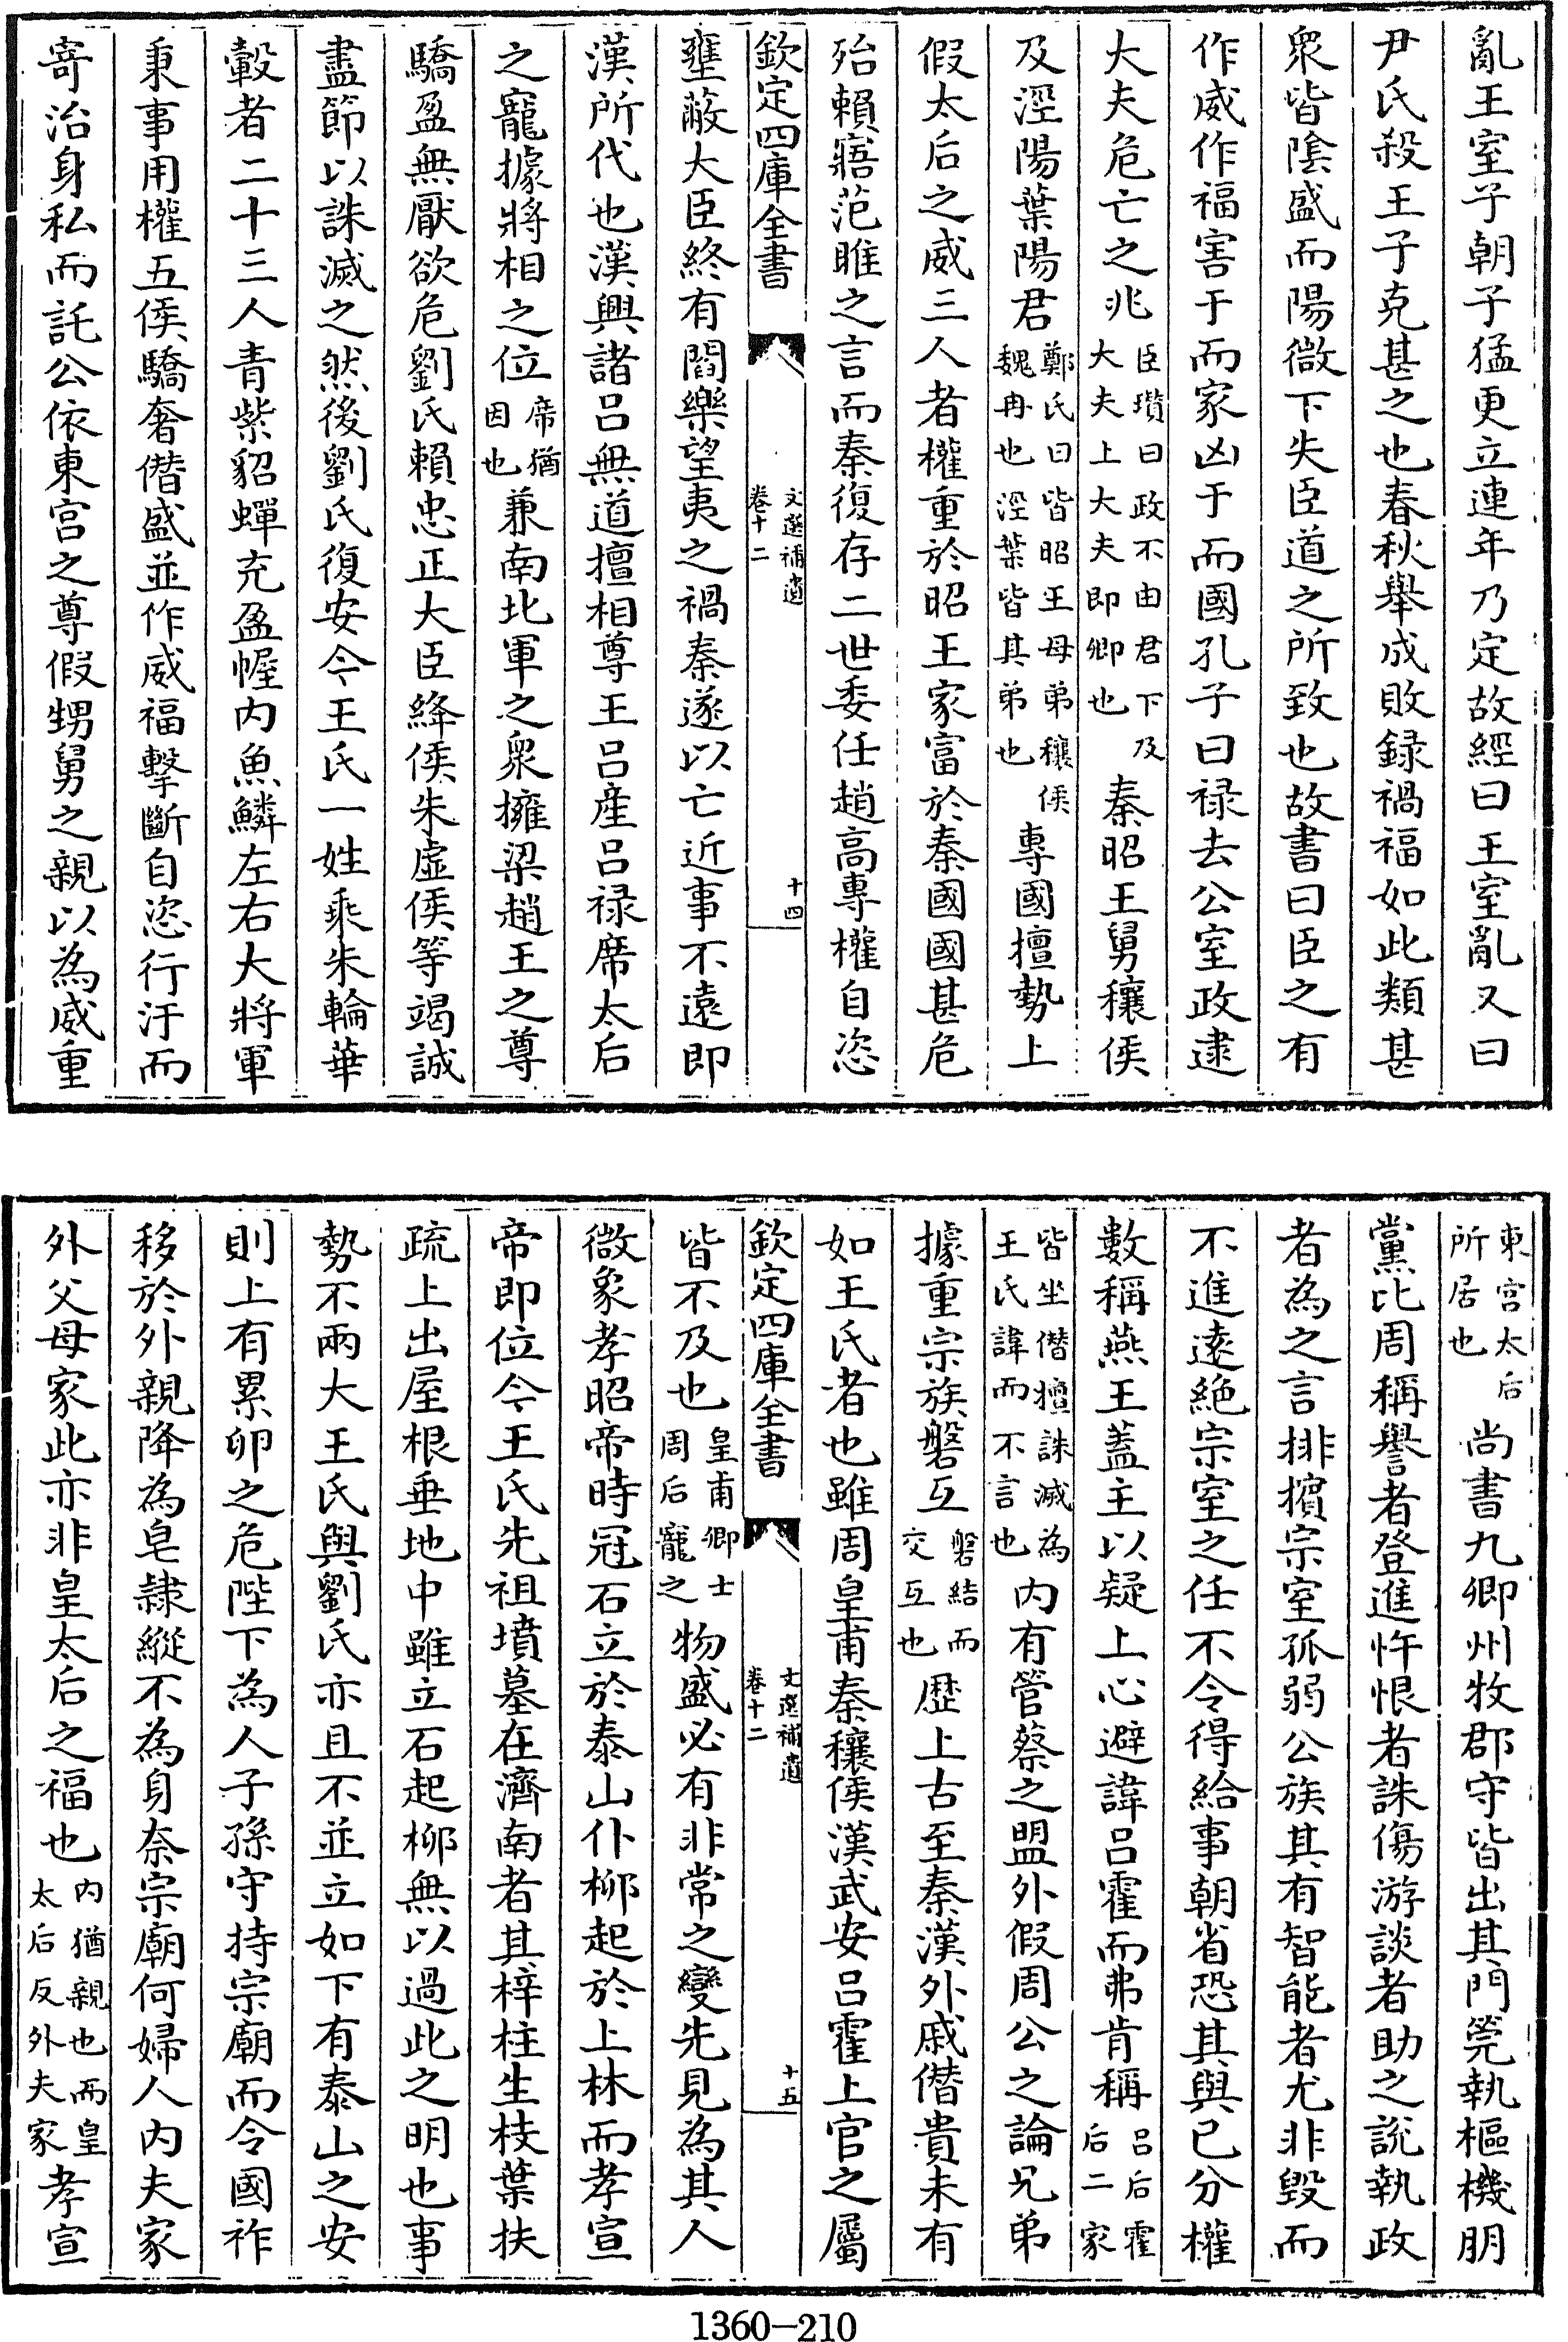 亂王室子朝子猛更立連年乃定故經曰王室亂又曰
尹氏殺王子克甚之也春秋舉成敗録禍福如此類甚
衆皆隂盛而陽微下失臣道之所致也故書曰臣之有
作威作福害于而家凶于而國孔子曰禄去公室政逮
大夫危亡之兆臣瓚曰政不由君下及大夫上大夫即卿也秦昭王舅穰侯
及涇陽葉陽君鄭氏曰皆昭王母弟穰侯魏冉也涇葉皆其弟也專國擅勢上
假太后之威三人者權重於昭王家富於秦國國甚危
殆賴寤范雎之言而秦復存二世委任趙高專權自恣
欽定四庫全書
文選補遺
卷十二
十四
壅蔽大臣終有閻樂望夷之禍秦遂以亡近事不遠即
漢所代也漢興諸吕無道擅相尊王吕産吕禄席太后
之寵據將相之位席猶因也兼南北軍之衆擁梁趙王之尊
驕盈無厭欲危劉氏賴忠正大臣絳侯朱虚侯等竭誠
盡節以誅滅之然後劉氏復安今王氏一姓乘朱輪華
轂者二十三人青紫貂蟬充盈幄内魚鱗左右大將軍
秉事用權五侯驕奢僭盛並作威福擊斷自恣行汙而
寄治身私而託公依東宫之尊假甥舅之親以為威重
東宫太后所居也尚書九卿州牧郡守皆出其門筦執樞機朋
黨比周稱譽者登進忤恨者誅傷游談者助之説執政
者為之言排擯宗室孤弱公族其有智能者尤非毁而
不進逺絶宗室之任不令得給事朝省恐其與已分權
數稱燕王蓋主以疑上心避諱吕霍而弗肯稱吕后霍后二家
皆坐僭擅誅滅為王氏諱而不言也内有管蔡之盟外假周公之論兄弟
據重宗族磐互磐結而交互也歴上古至秦漢外戚僭貴未有
如王氏者也雖周皇甫秦穰侯漢武安吕霍上官之屬
欽定四庫全書
文選補遺
卷十二
十五
皆不及也皇甫卿士周后寵之物盛必有非常之變先見為其人
微象孝昭帝時冠石立於泰山仆柳起於上林而孝宣
帝即位今王氏先祖墳墓在濟南者其梓柱生枝葉扶
疏上出屋根垂地中雖立石起柳無以過此之明也事
勢不兩大王氏與劉氏亦且不並立如下有泰山之安
則上有累卵之危陛下為人子孫守持宗廟而令國祚
移於外親降為皂隷縱不為身奈宗廟何婦人内夫家
外父母家此亦非皇太后之福也内猶親也而皇太后反外夫家孝宣
1360-210